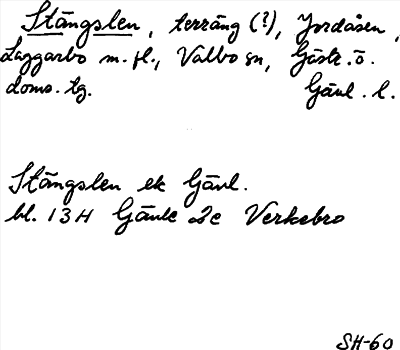 Stängslen, terräng (?), Jordåsen,
Laggarbo m. fl., Valbo sn, Gästr. ö.
doms. tg. Gävl. l.
Stängslen ek Gävl.
bl. 13H Gävle 2c Verkebro
SH-60